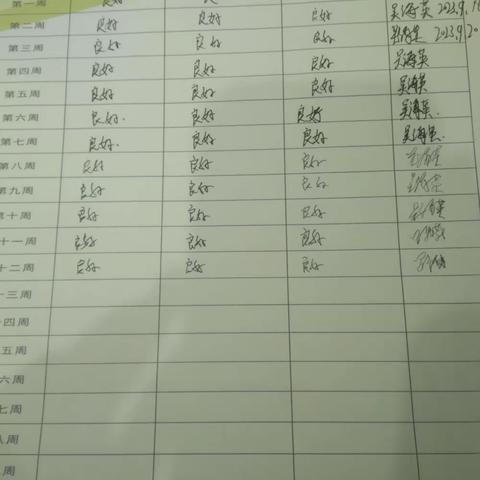 第一周 良好 良 吴海英 2023.9.1
第二周 良好 良好 良好 吴海英 2023.9.20
第三周 良好 良好 良好 吴海英
第四周 良好 良好 良好 吴海英
第五周 良好 良好 良好 吴海英
第六周 良好. 良好 良好 吴海英.
第七周 良好. 良好 良好 吴海英.
第八周 良好 良好 良好
第九周 良好 良好 良好
第十周 良好 良好 良好
十一周 良好 良好 良好
十二周 良好 良好 良好
十三周
十四周
五周
六周
七周
八周
周